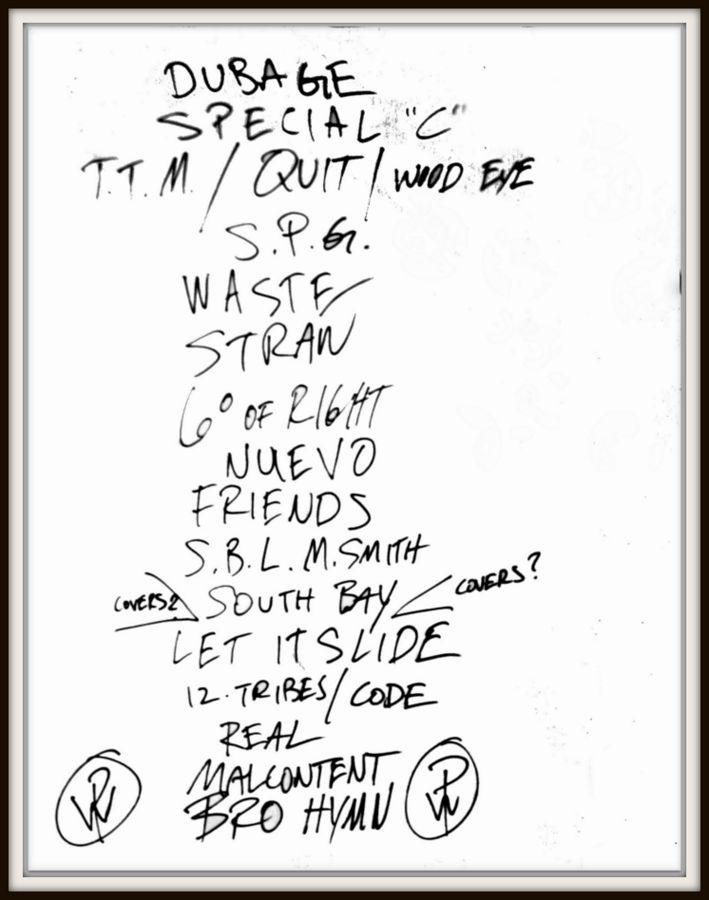 DUBAGE
SPECIAL "C"
T.T.M / QUIT / WOOD EYE
S.P.G.
WASTE
STRAW
6° OF RIGHT
NUEVO
FRIENDS
S.B.L. M. SMITH
COVERS? SOUTH BAY COVERS?
LET IT SLIDE
12. TRIBES / CODE
REAL
MALCONTENT
BRO HYMN